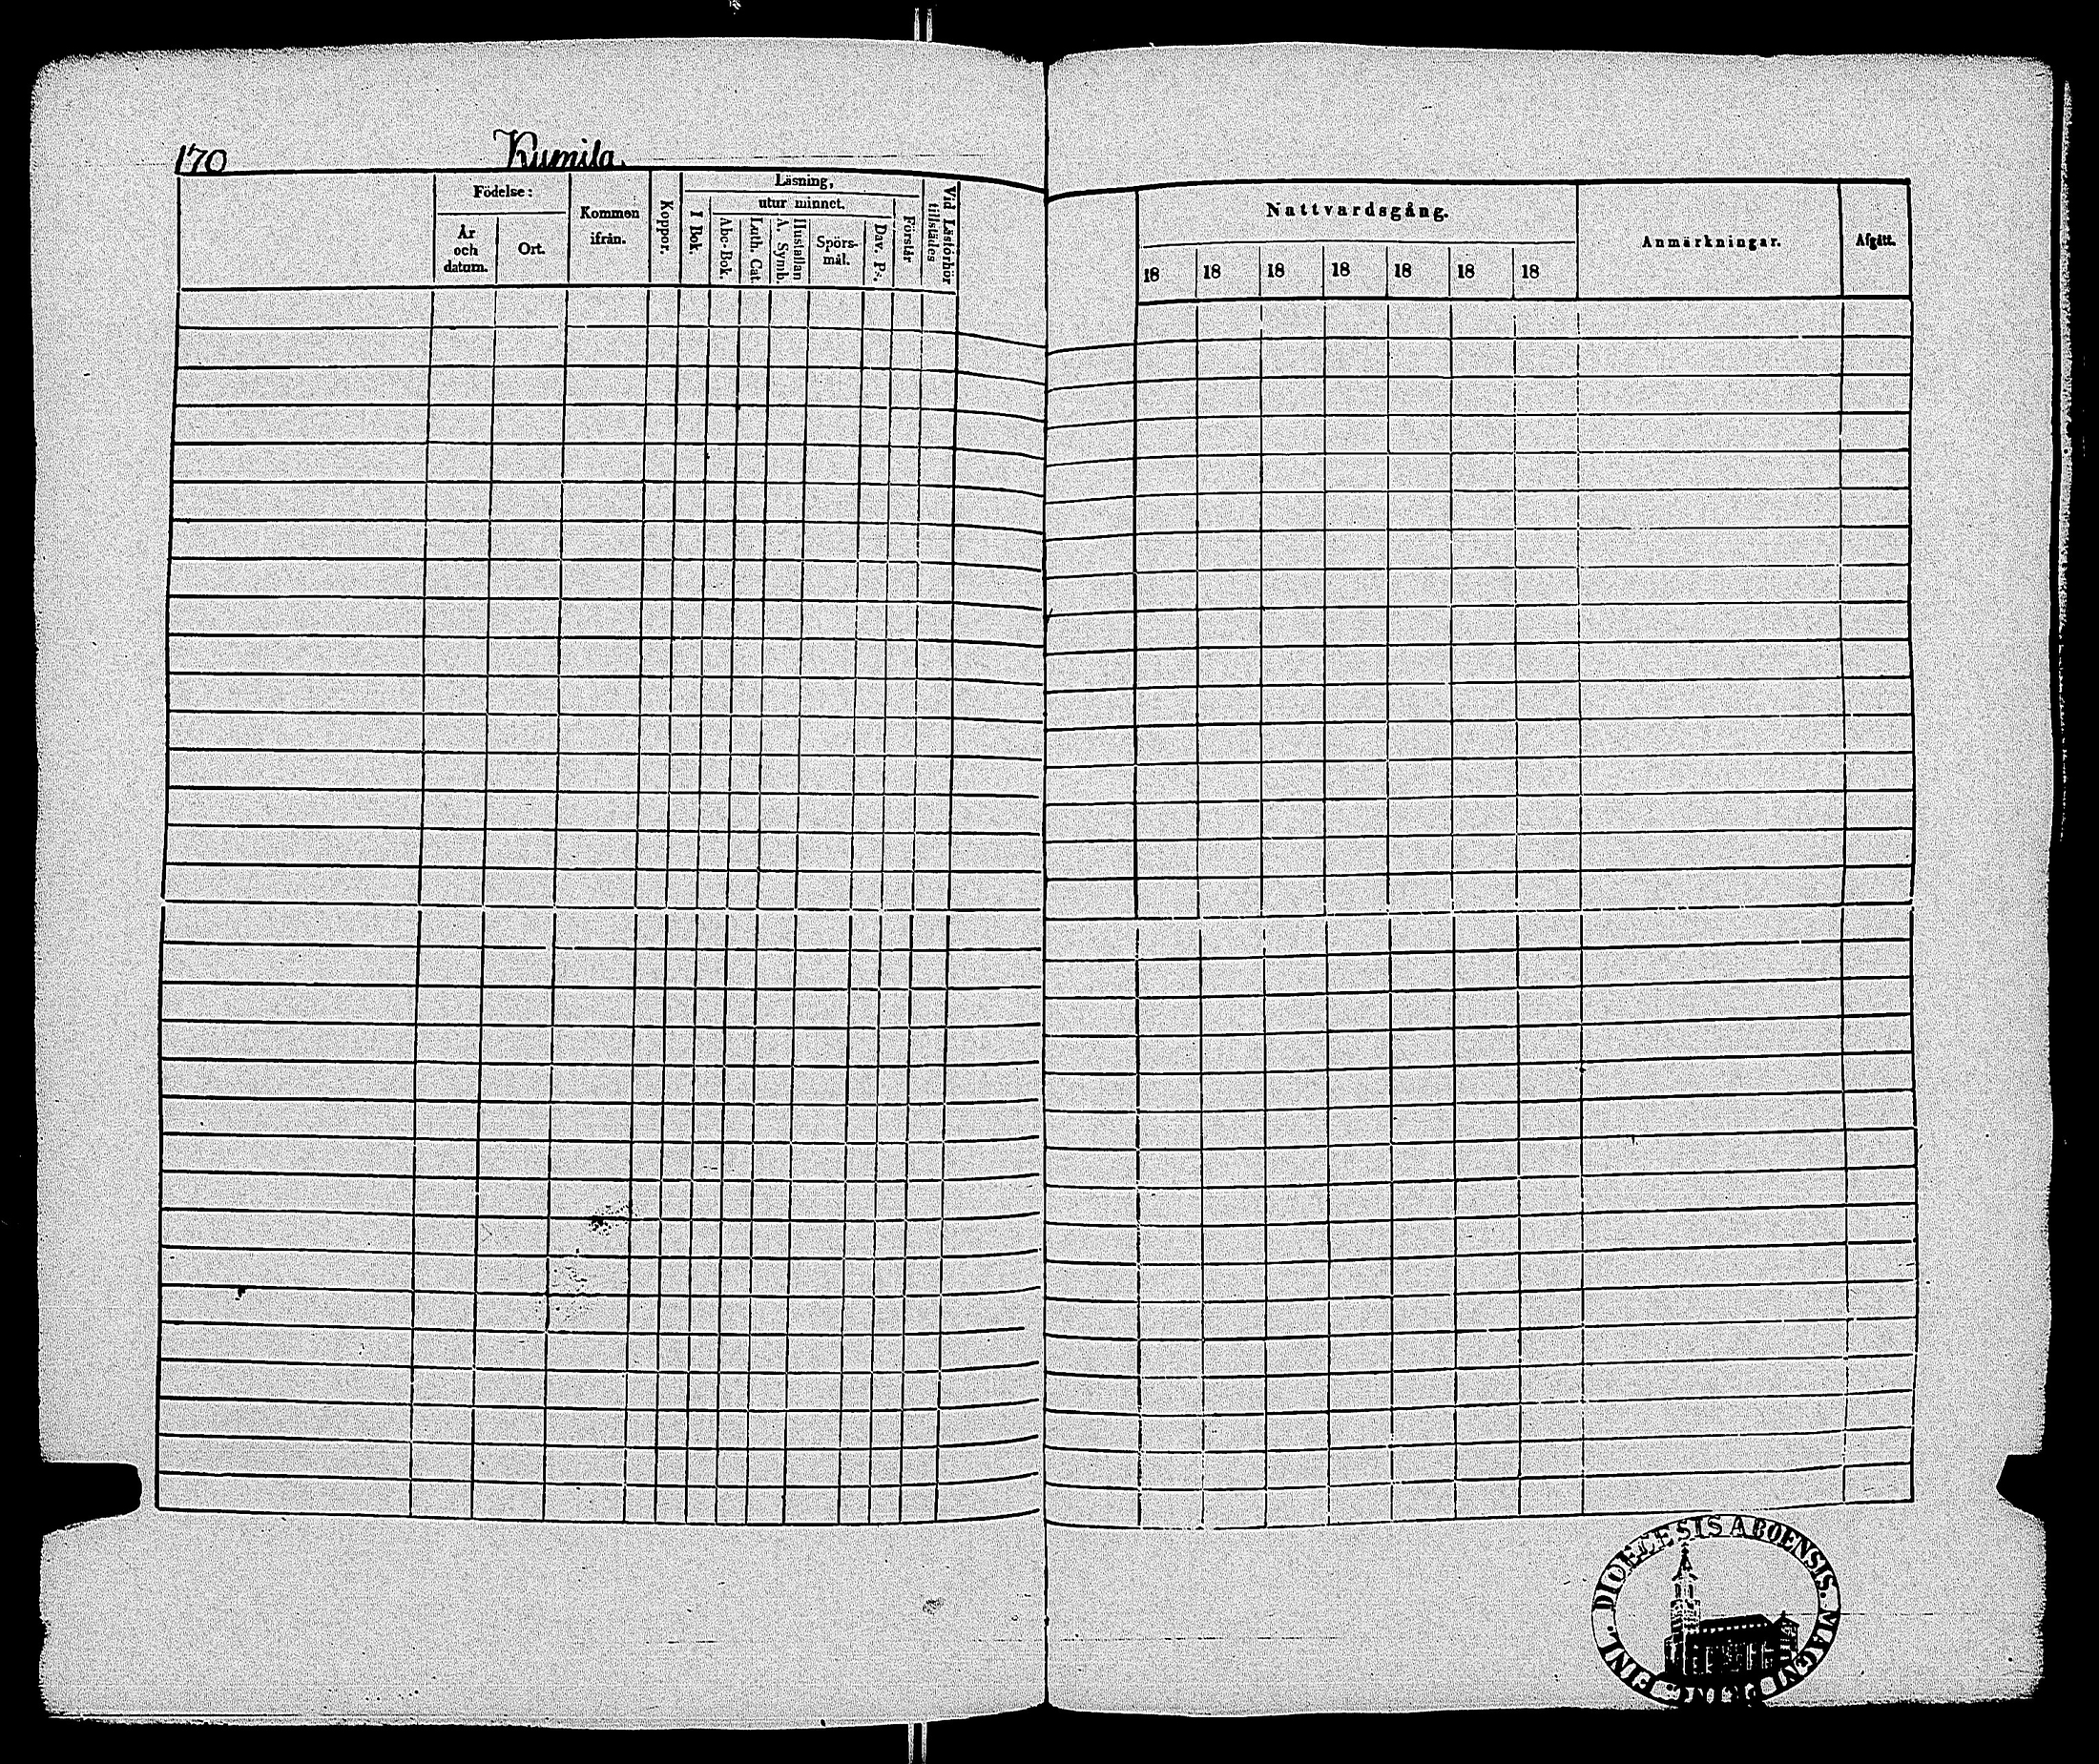 170 Kumila.
Födelse:
År och datum.
Ort.
Kommen ifrån.
Koppor.
Läsning,
I Bok.
utur minnet.
Abc-Bok.
Luth. Cat.
Hustaflan A. Symb.
Spörsmål.
Dav. Ps.
Förstår
Vid Läsförhör tillstädes
Nattvardsgång.
18 18 18 18 18 18 18
Anmärkningar.
Afgått.
DIOECESIS ABOENSIS. MAGNI PRINC. FINL.